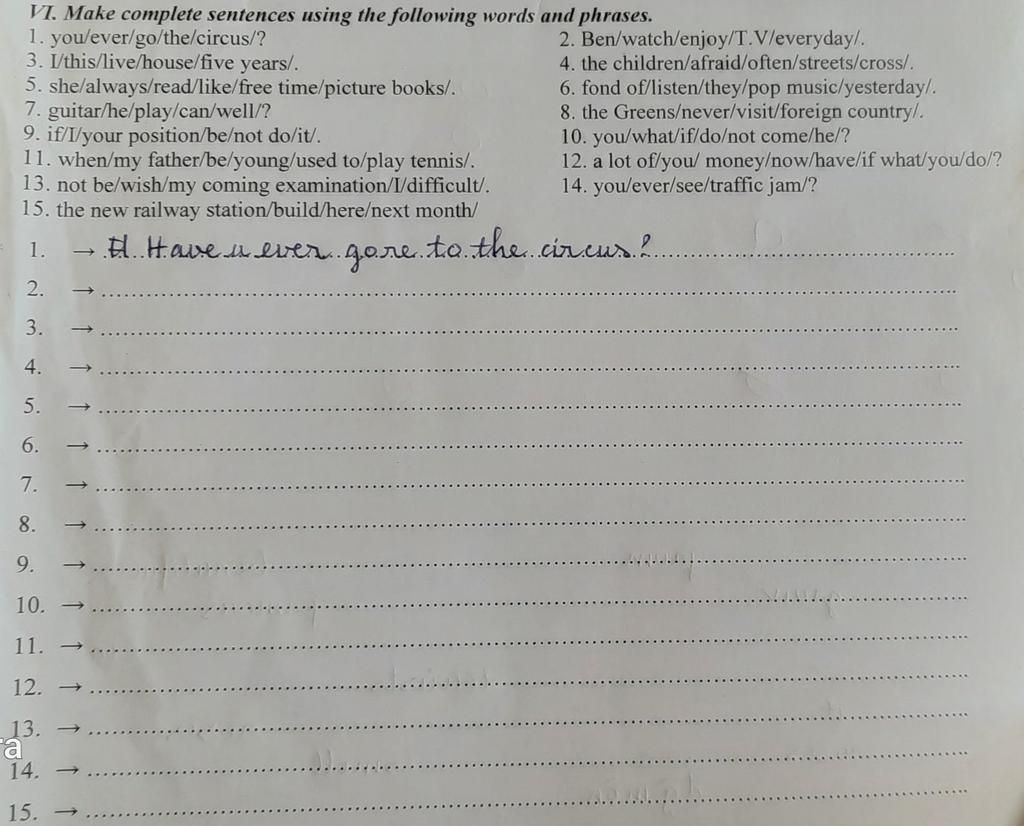 VI. Make complete sentences using the following words and phrases.
1. you/ever/go/the/circus/?
2. Ben/watch/enjoy/T.V/everyday/.
3. I/this/live/house/five years/.
4. the children/afraid/often/streets/cross/.
5. she/always/read/like/free time/picture books/.
6. fond of/listen/they/pop music/yesterday/.
7. guitar/he/play/can/well/?
8. the Greens/never/visit/foreign country/.
9. if/I/your position/be/not do/it/.
10. you/what/if/do/not come/he/?
11. when/my father/be/young/used to/play tennis/.
12. a lot of/you/ money/now/have/if what/you/do/?
13. not be/wish/my coming examination/I/difficult/.
14. you/ever/see/traffic jam/?
15. the new railway station/build/here/next month/
1. → Have u ever gone to the circus?
2. →
3. →
4. →
5. →
6. →
7. →
8. →
9. →
10. →
11. →
12. →
13. →
ra
14. →
15. →